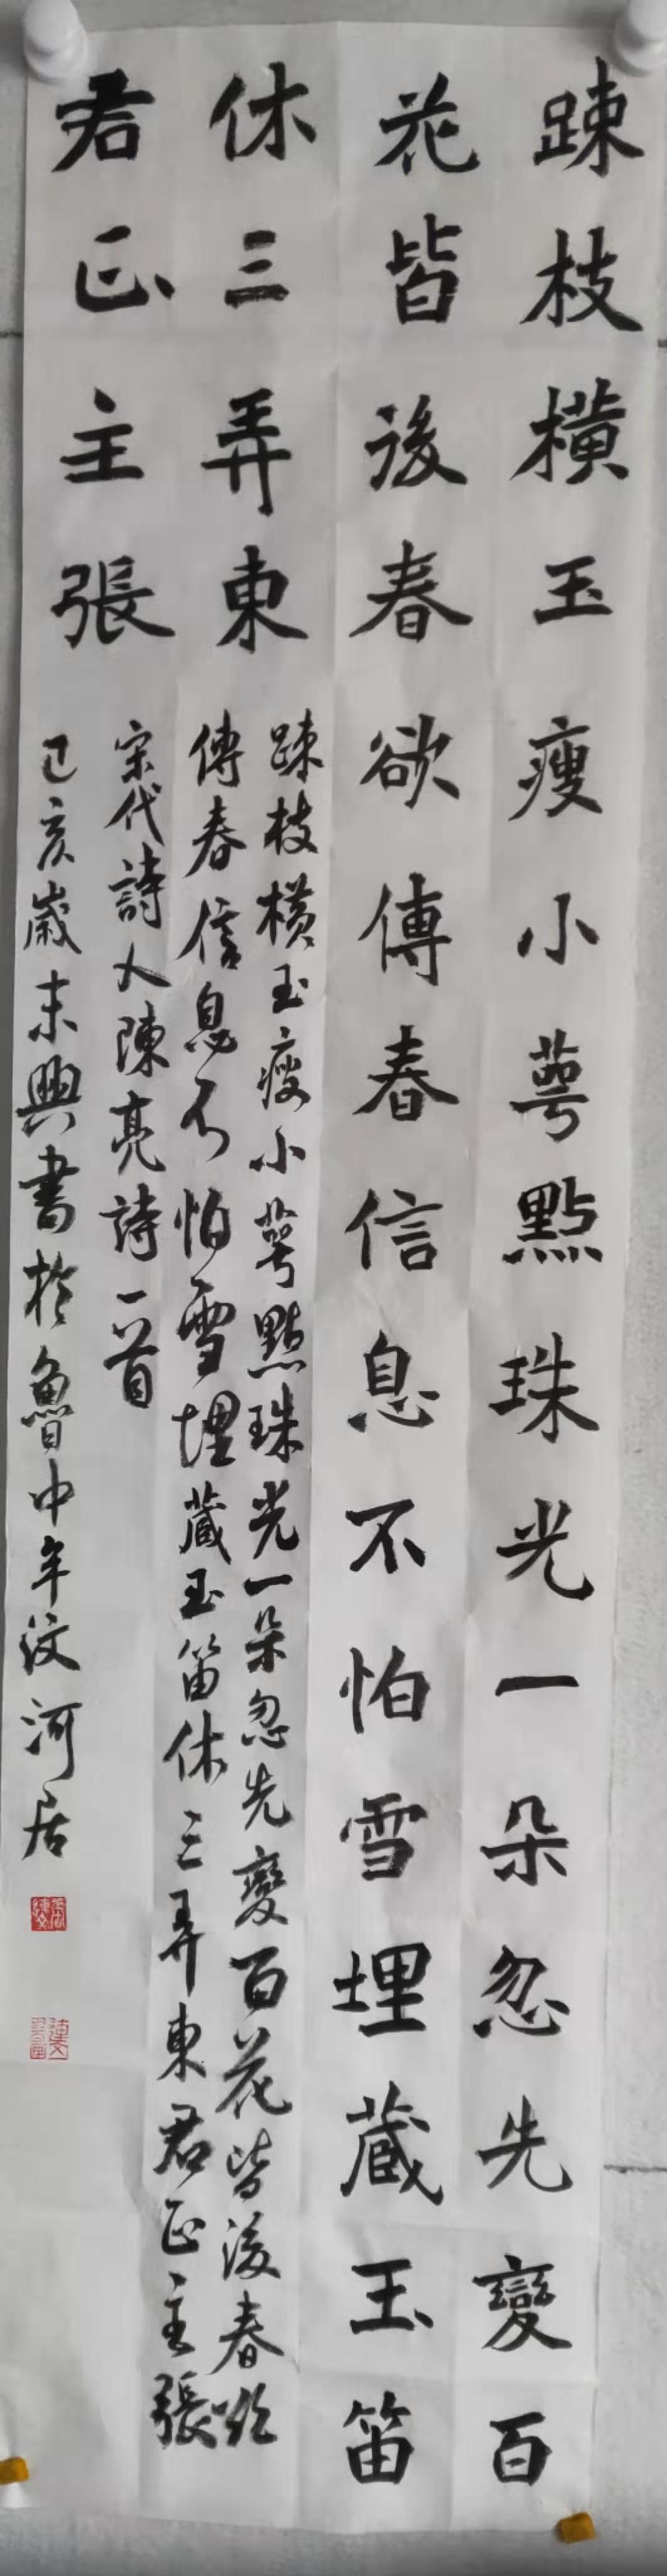 踈枝橫玉瘦小萼點珠光一朵忽先變百
花皆後春欲傳春信息不怕雪埋藏玉笛
休三弄東
君正主張
踈枝横玉瘦小萼點珠光一朵忽先變百花皆後春欲
傳春信息不怕雪埋藏玉笛休三弄東君正主張
宋代詩人陳亮詩一首
己亥歲末興書於魯中牟汶河居